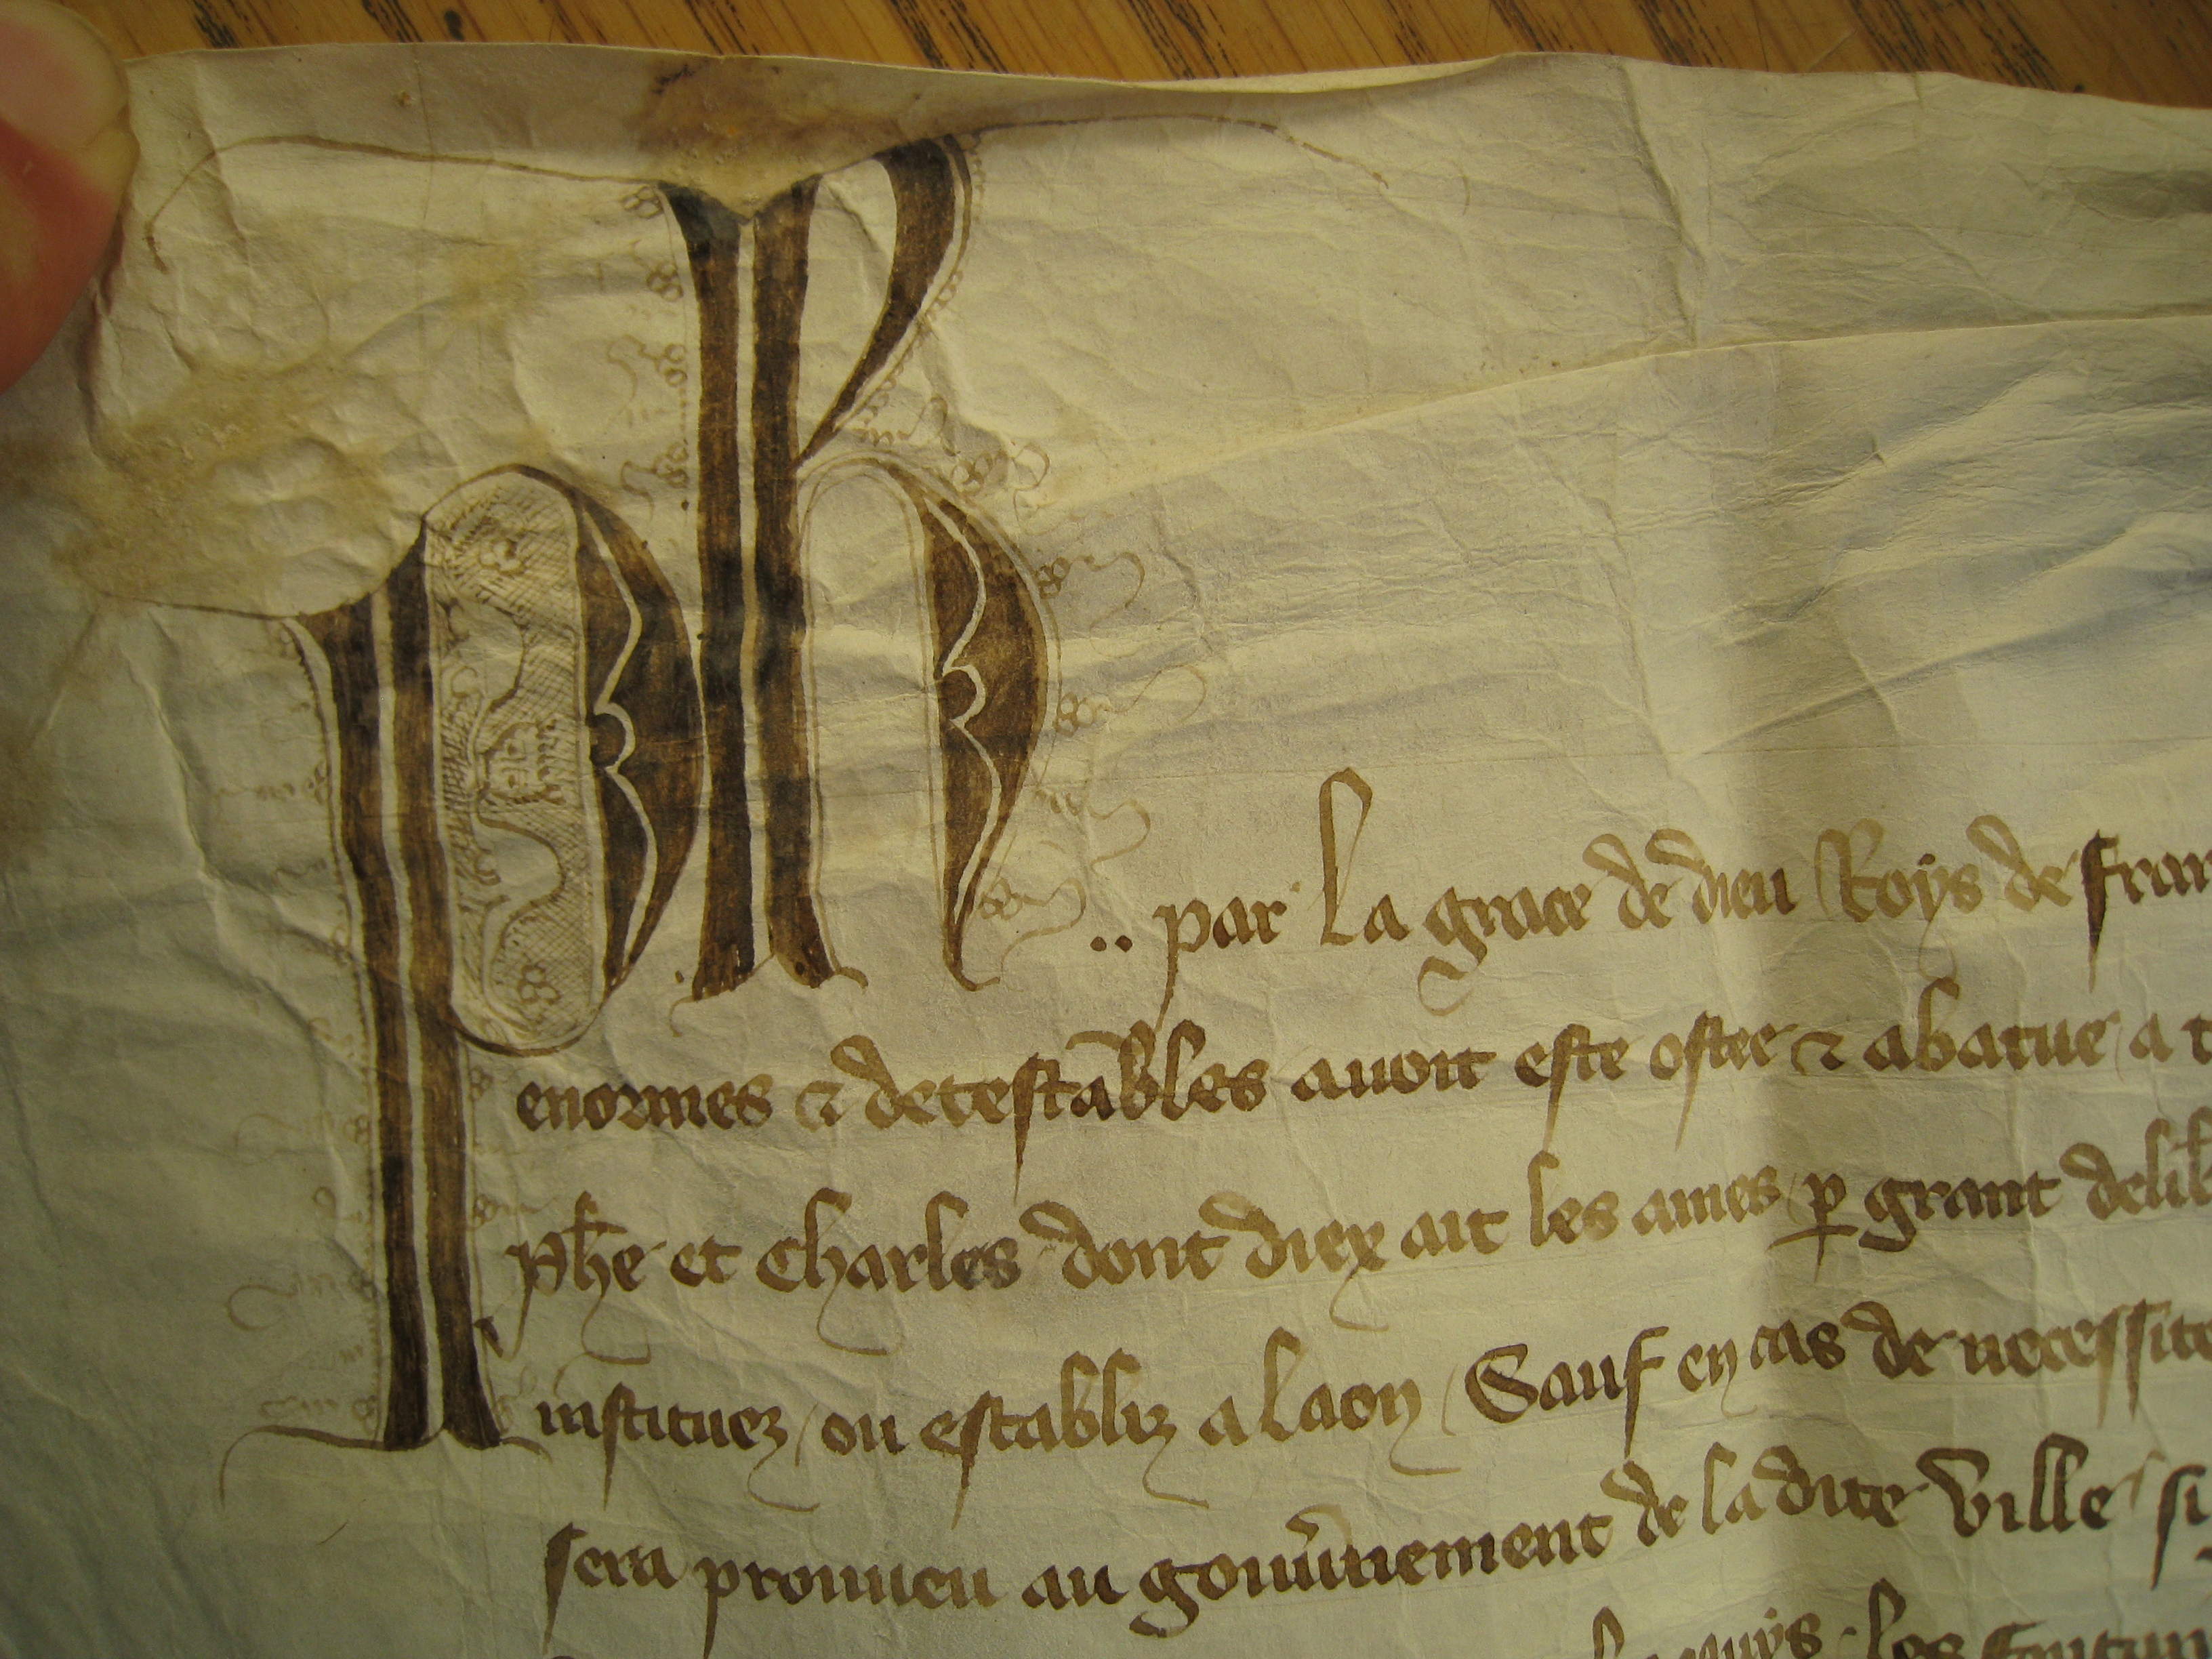 Ph .. par la grace de dieu Roys de Fran
enormes & detestables avoit este ostee & abatue a t
Phe et Charles dont diex ait les ames p grant delib
instituez / ou establiz a Laon / Sauf en cas de necessite
sera promueu au gouvnement de la dite ville si
les